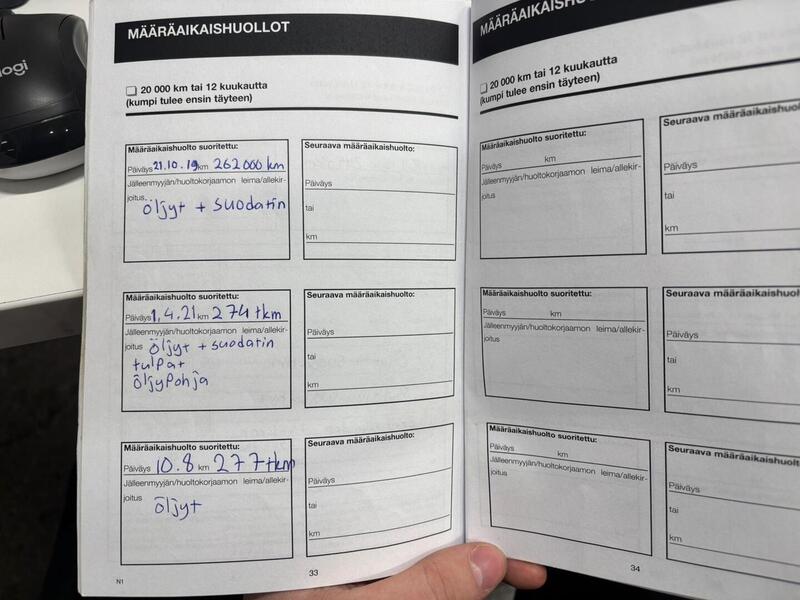 ogi
MÄÄRÄAIKAISHUOLLOT
20 000 km tai 12 kuukautta
(kumpi tulee ensin täyteen)
Määräaikaishuolto suoritettu:
Päiväys 21.10.19 km 262000 km
Jälleenmyyjän/huoltokorjaamon leima/allekir-
joitus
öljyt + suodatin
Seuraava määräaikaishuolto:
Päiväys
tai
km
Määräaikaishuolto suoritettu:
Päiväys 1.4.21 km 274 tkm
Jälleenmyyjän/huoltokorjaamon leima/allekir-
joitus öljyt + suodatin
tulpat
öljypohja
Seuraava määräaikaishuolto:
Päiväys
tai
km
Määräaikaishuolto suoritettu:
Päiväys 10.8 km 277tkm
Jälleenmyyjän/huoltokorjaamon leima/allekir-
joitus
öljyt
Seuraava määräaikaishuolto:
Päiväys
tai
km
N1
33
20 000 km tai 12 kuukautta
(kumpi tulee ensin täyteen)
Määräaikaishuolto suoritettu:
Päiväys km
Jälleenmyyjän/huoltokorjaamon leima/allekir-
joitus
Seuraava määräaikaishuolto
Päiväys
tai
km
Määräaikaishuolto suoritettu:
Päiväys km
Jälleenmyyjän/huoltokorjaamon leima/allekir-
joitus
Seuraava määräaikaishuolto
Päiväys
tai
km
Määräaikaishuolto suoritettu:
Päiväys km
Jälleenmyyjän/huoltokorjaamon leima/allekir-
joitus
Seuraava määräaikaishuolto
Päiväys
tai
km
34